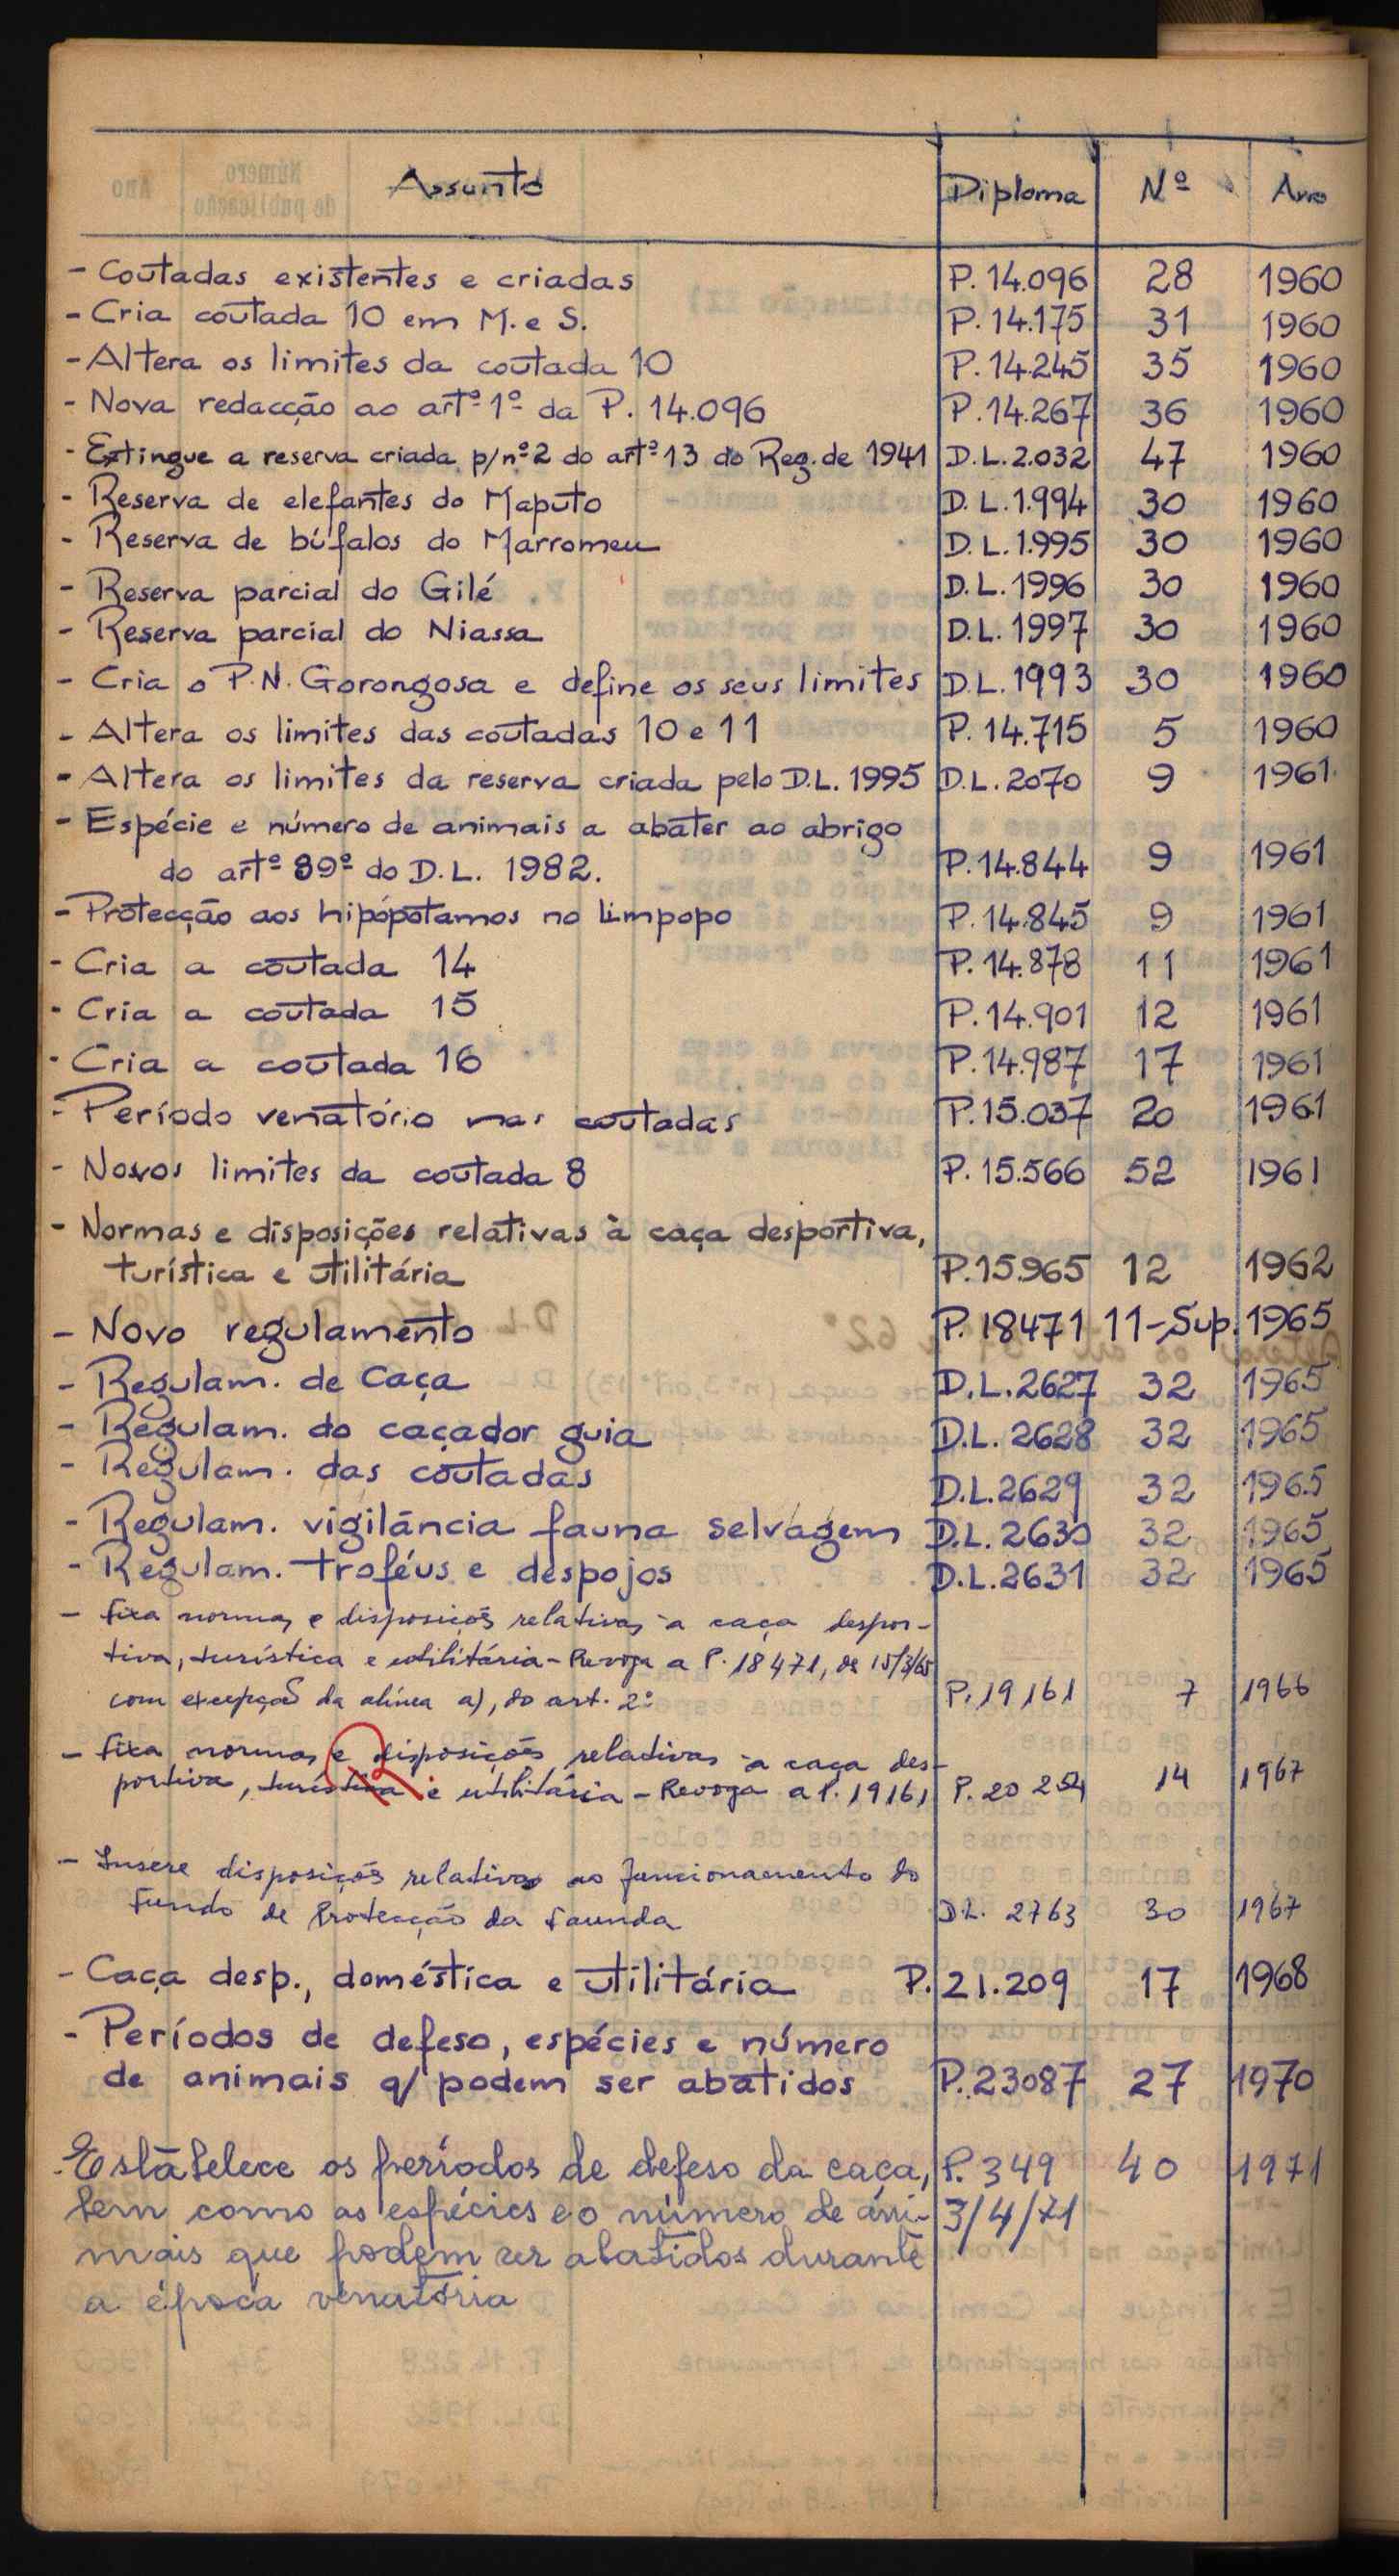 Assunto Diploma Nº Ano
- Coutadas existentes e criadas P. 14.096 28 1960
- Cria coutada 10 em M. e S. P. 14.175 31 1960
- Altera os limites da coutada 10 P. 14.245 35 1960
- Nova redacção ao artº 1º da P. 14.096 P. 14.267 36 1960
- Extingue a reserva criada p/nº 2 do artº 13 do Reg. de 1941 D.L. 2.032 47 1960
- Reserva de elefantes do Maputo D.L. 1.994 30 1960
- Reserva de búfalos do Marromeu D.L. 1.995 30 1960
- Reserva parcial do Gilé D.L. 1996 30 1960
- Reserva parcial do Niassa D.L. 1997 30 1960
- Cria o P.N. Gorongosa e define os seus limites D.L. 1993 30 1960
- Altera os limites das coutadas 10 e 11 P. 14.715 5 1960
- Altera os limites da reserva criada pelo D.L. 1995 D.L. 2070 9 1961
- Espécie e número de animais a abater ao abrigo
do artº 89º do D.L. 1982. P. 14.844 9 1961
- Protecção aos hipópotamos no Limpopo P. 14.845 9 1961
- Cria a coutada 14 P. 14.878 11 1961
- Cria a coutada 15 P. 14.901 12 1961
- Cria a coutada 16 P. 14.987 17 1961
- Período venatório nas coutadas P. 15.037 20 1961
- Novos limites da coutada 8 P. 15.566 52 1961
- Normas e disposições relativas à caça desportiva,
turística e utilitária P. 15.965 12 1962
- Novo regulamento P. 18471 11-Sup. 1965
- Regulam. de Caça D.L. 2627 32 1965
- Regulam. do caçador guia D.L. 2628 32 1965
- Regulam. das coutadas D.L. 2629 32 1965
- Regulam. vigilância fauna selvagem D.L. 2630 32 1965
- Regulam. troféus e despojos D.L. 2631 32 1965
- Fixa normas e disposições relativas à caça despor-
tiva, turística e utilitária - Revoga a P. 18471, de 15/3/65
com excepção da alínea a), do art. 2º P. 19161 7 1966
- Fixa normas e disposições relativas à caça des-
portiva, turística e utilitária - Revoga a P. 19161 P. 20254 14 1967
- Insere disposições relativas ao funcionamento do
Fundo de Protecção da Faunda D.L. 2763 30 1967
- Caça desp., doméstica e utilitária P. 21.209 17 1968
- Períodos de defeso, espécies e número
de animais q/ podem ser abatidos P. 23087 27 1970
- Estabelece os períodos de defeso da caça, P. 349 40 1971
bem como as espécies e o número de ani- 3/4/71
mais que podem ser abatidos durante
a época venatória